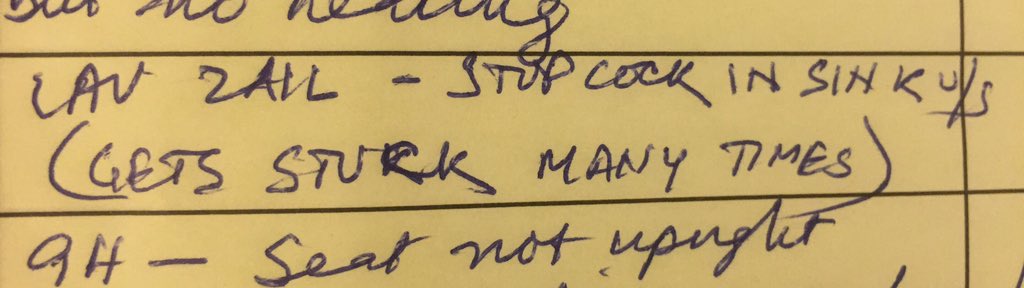 but no heating
LAV 2AIL - STOPCOCK IN SINK U/S
(GETS STUCK MANY TIMES)
9H — Seat not upright